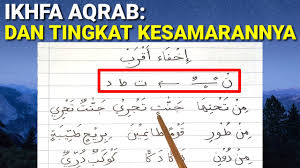 IKHFA AQRAB:
DAN TINGKAT KESAMARANNYA
إِخْفَاءْ أَقْرَبْ
نْ ـًـٍـٌ ← ت ط د
مِنْ تَحْتِهَا جَنّٰتٍ تَجْرِيْ جَنّٰتٌ تَجْرِيْ
مِنْ طُوْرِ قَوْمًا طَاغِيْنَ بِرِيْحٍ طَيِّبَةٍ
مِنْ دُوْنِ دَكًّا دَكًّا كَوْكَبٌ دُرِّيٌّ